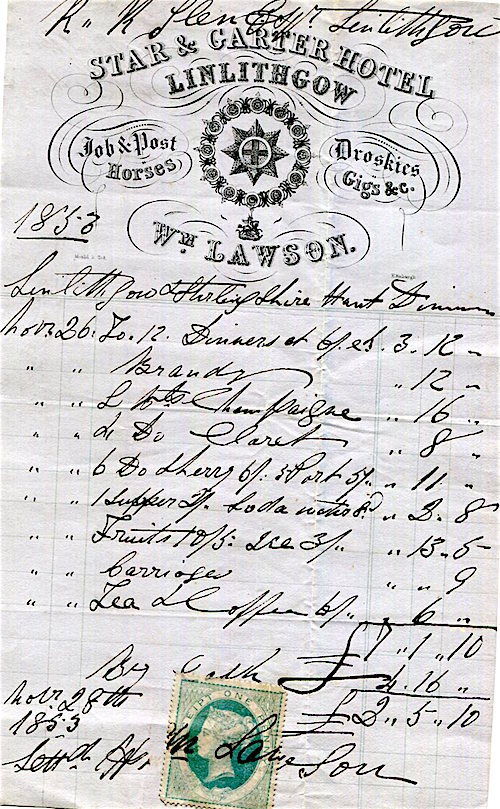 R. R. Glen Esqr Linlithgow
STAR & GARTER HOTEL
LINLITHGOW
Job & Post Horses
Droskies Gigs &c.
1853
Wm LAWSON.
Edinburgh
Linlithgow & Stirling Shire Hunt Dinner
Novr. 26. To. 12. Dinners at 6/. ea. 3. 12 "
" " Brandy " 12 "
" " Champaigne " 16 "
" " Do Claret " 8 "
" " 6 Do Sherry 6/. Port 5/. " 11 "
" " 1 Supper 2/. Soda water 8d " 2. 8
" " Fruits 10/5. Ice 3/. " 13. 5
" " Carriages " " 9
" " Tea & Coffee 6/. " 6 "
£7 " 1 " 10
By Cash £4. 16 "
Novr. 28th £2 " 5 " 10
1853
Settd. Wm Lawson